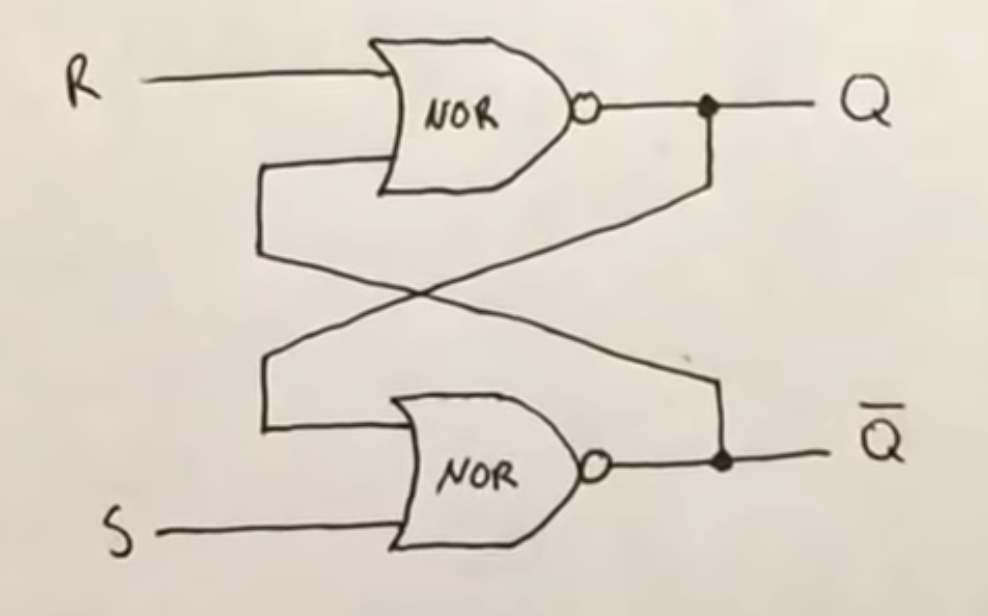 R
NOR
Q
NOR
Q̅
S